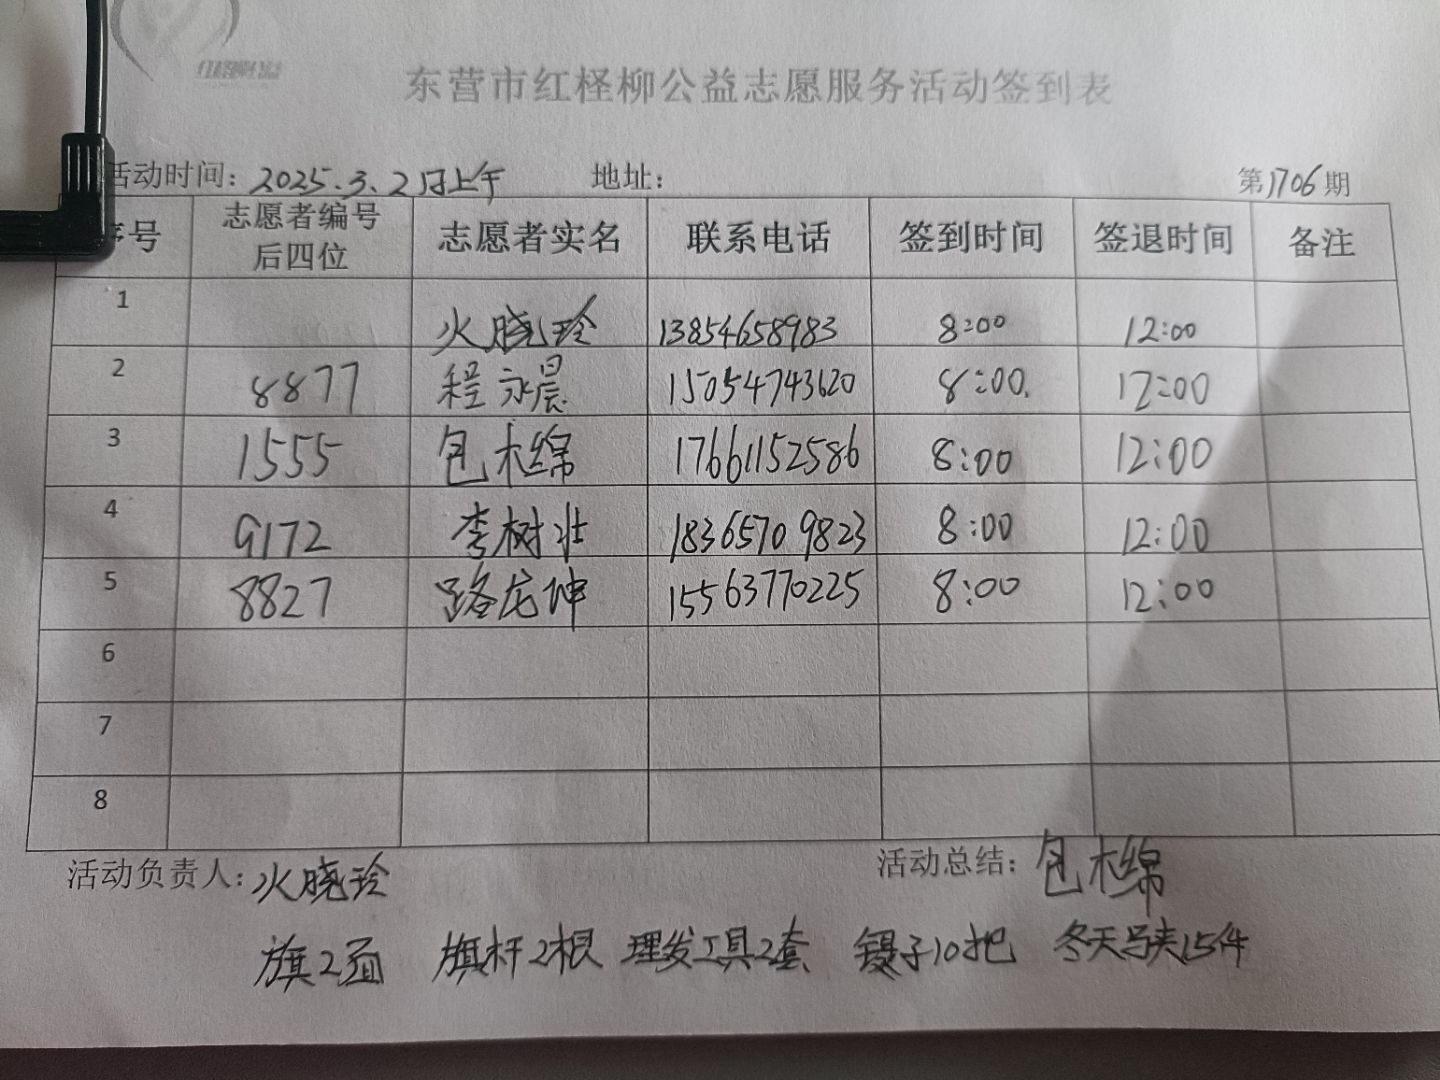 东营市红柽柳公益志愿服务活动签到表
活动时间：2025.3.2日上午 地址： 第1706期
序号 志愿者编号后四位 志愿者实名 联系电话 签到时间 签退时间 备注
1 火晓玲 13854658983 8:00 12:00
2 8877 程永晨 15054743620 8:00. 12:00
3 1555 包木绵 17661152586 8:00 12:00
4 9172 李树壮 18365709823 8:00 12:00
5 8827 路龙坤 15563770225 8:00 12:00
6
7
8
活动负责人：火晓玲 活动总结：包木绵
旗2面 旗杆2根 理发工具2套 镊子10把 冬天马夹15件